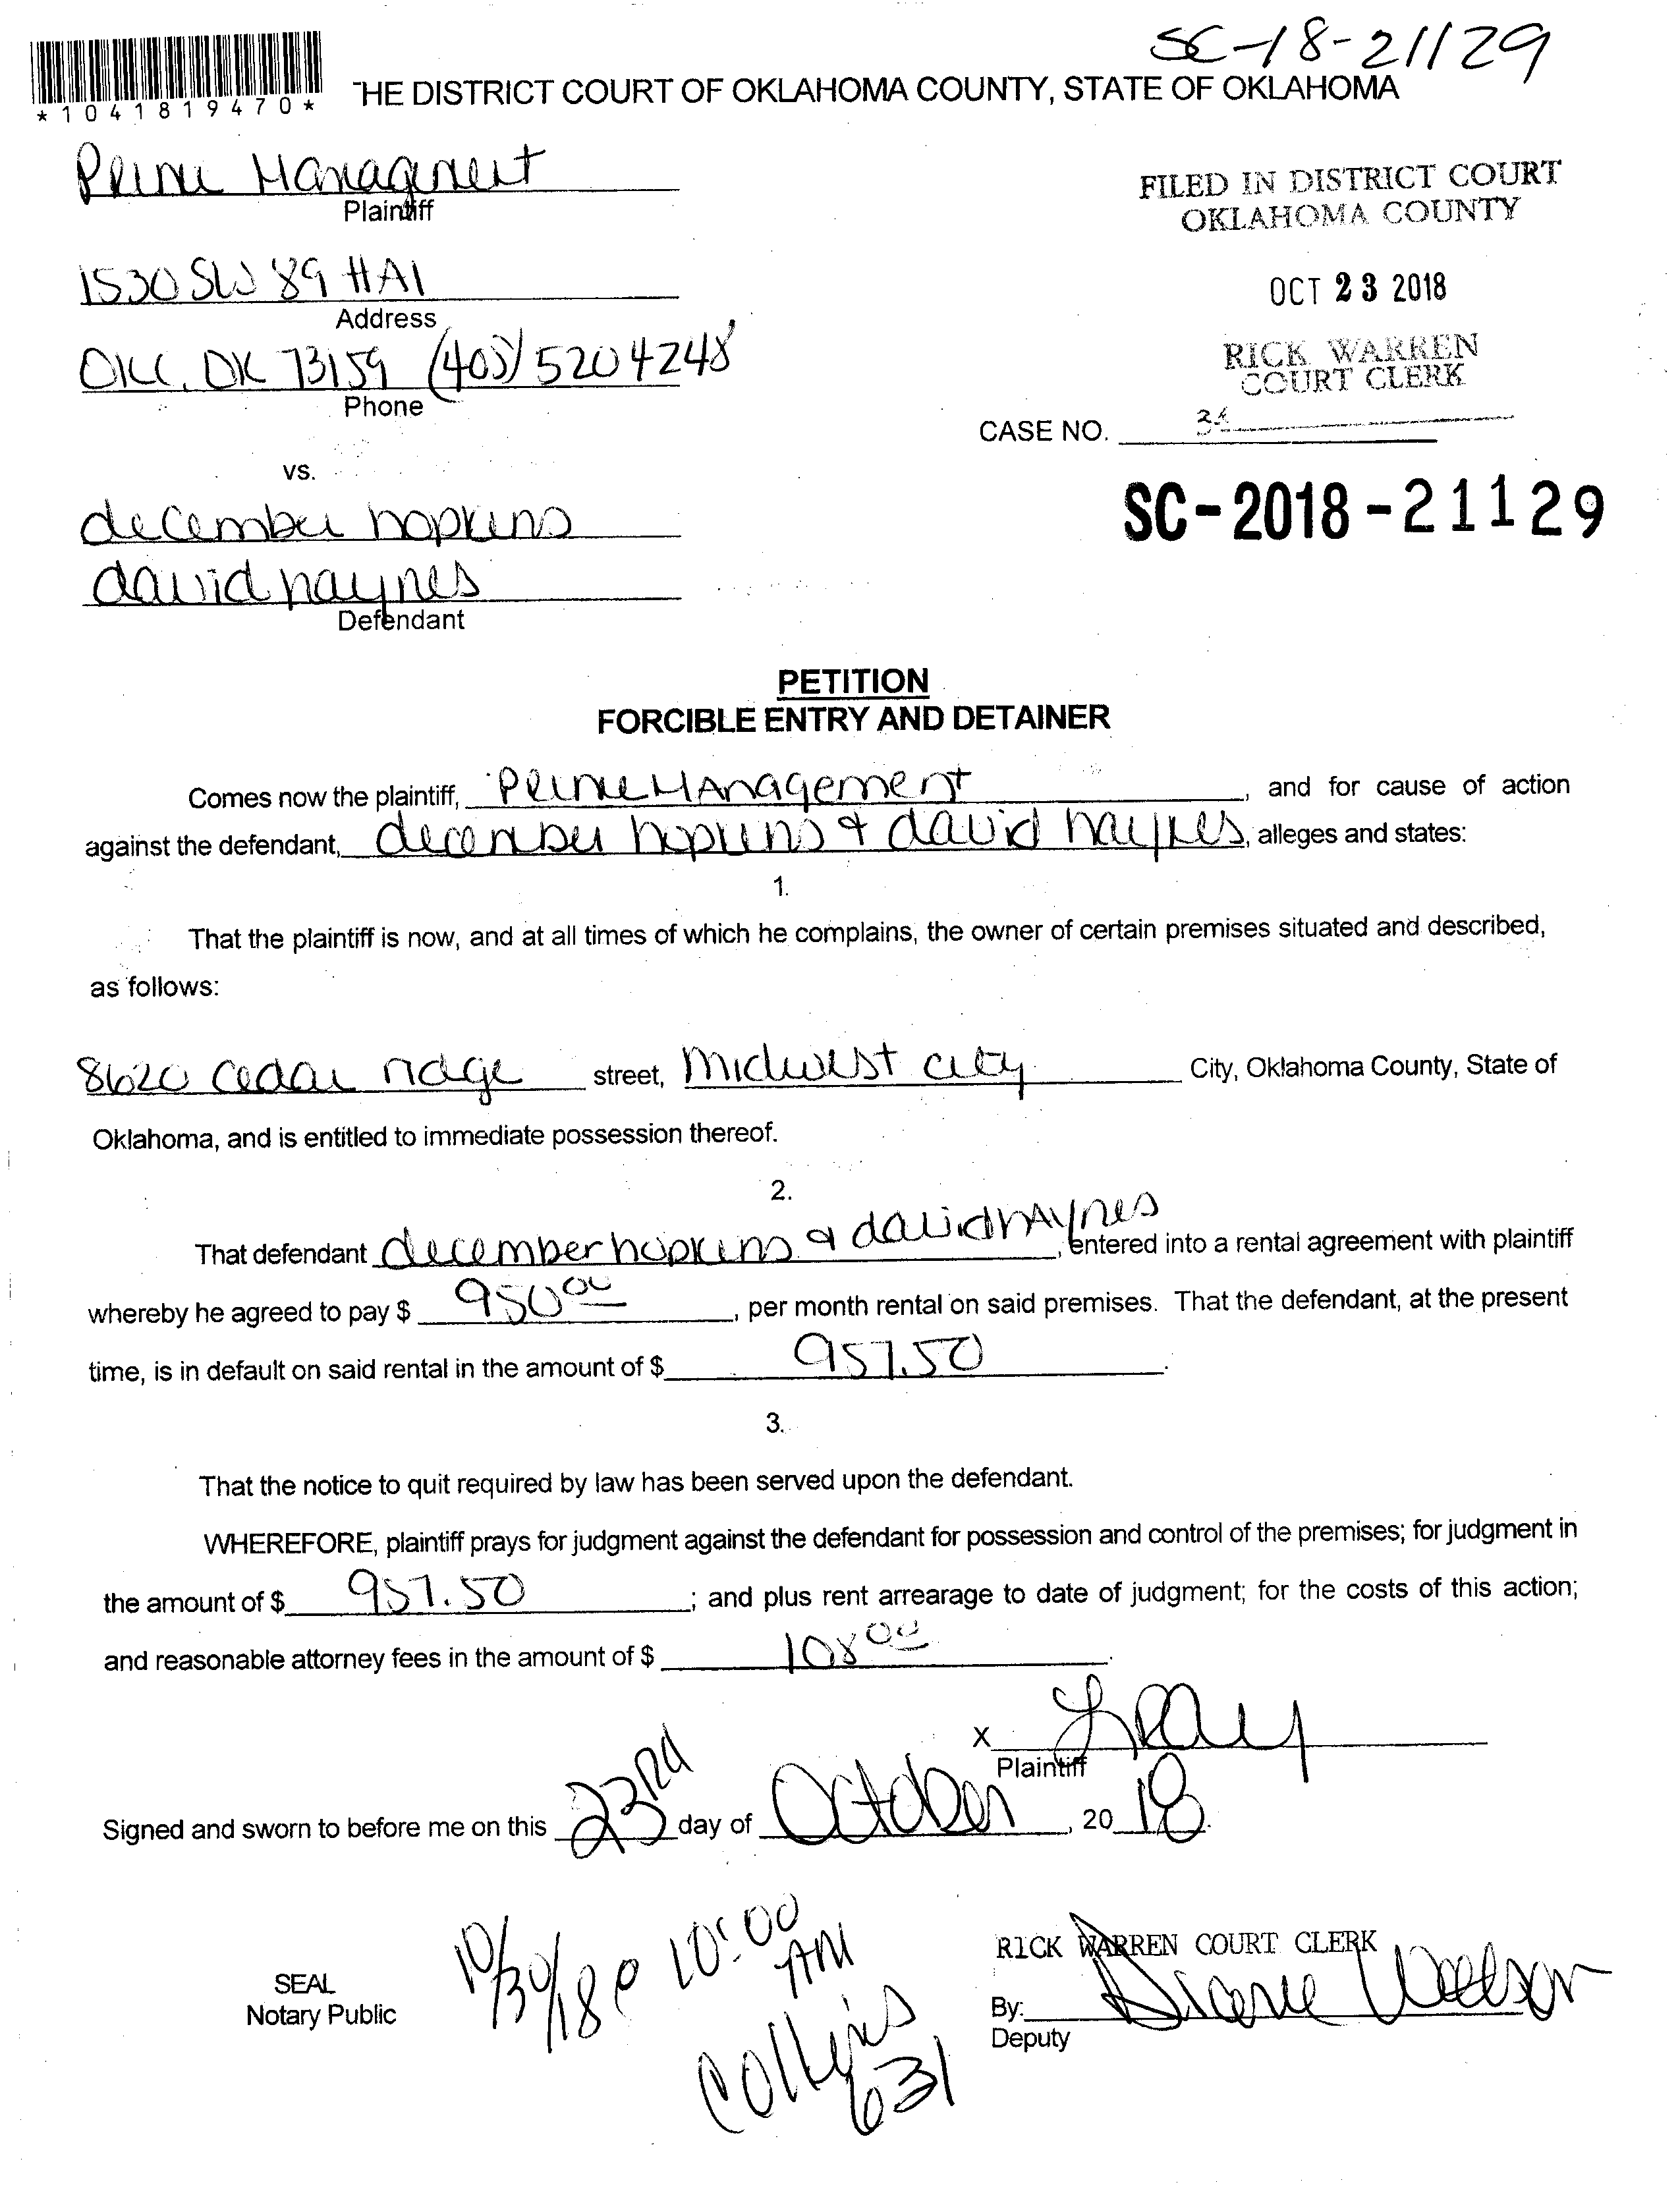 SC-18-21129
*1041819470*
THE DISTRICT COURT OF OKLAHOMA COUNTY, STATE OF OKLAHOMA
Prime Managment
Plaintiff
FILED IN DISTRICT COURT
OKLAHOMA COUNTY
1530 SW 89 #A1
Address
OCT 23 2018
OKC, OK 73159 (405) 5204248
Phone
RICK WARREN
COURT CLERK
CASE NO.
vs.
SC-2018-21129
december hopkins
david haynes
Defendant
PETITION
FORCIBLE ENTRY AND DETAINER
Comes now the plaintiff, Prime Management, and for cause of action
against the defendant, december hopkins & david haynes, alleges and states:
1.
That the plaintiff is now, and at all times of which he complains, the owner of certain premises situated and described,
as follows:
8620 cedar ridge street, midwest city City, Oklahoma County, State of
Oklahoma, and is entitled to immediate possession thereof.
2.
That defendant december hopkins & david haynes, entered into a rental agreement with plaintiff
whereby he agreed to pay $ 950 00, per month rental on said premises. That the defendant, at the present
time, is in default on said rental in the amount of $ 957.50.
3.
That the notice to quit required by law has been served upon the defendant.
WHEREFORE, plaintiff prays for judgment against the defendant for possession and control of the premises; for judgment in
the amount of $ 957.50; and plus rent arrearage to date of judgment; for the costs of this action;
and reasonable attorney fees in the amount of $ 108 00.
X
Plaintiff
Signed and sworn to before me on this 23rd day of October, 20 18.
10/30/18 @ 10:00 AM
RICK WARREN COURT CLERK
SEAL
Notary Public
By:
Deputy
Collins
631